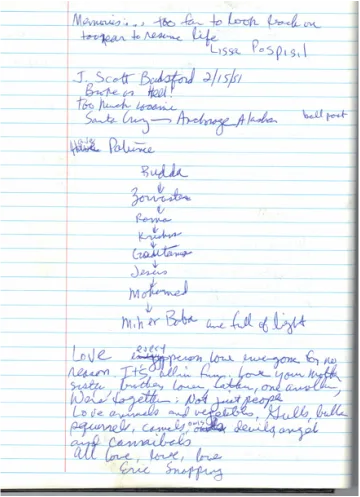 Memories..., too far to look back on
too near to resume life
Lissa Pospisil
J. Scott 2/15/51
Broke as Hell!
too much
Santa Cruz — Anchorage Alaska
Patience
Budda
Zoroaster
Rama
Krishna
Jesus
Mohamed
Baba are full of light
Love every person love everyone for no
reason. It's all in fun. Love your mother
sister, brother, lover, one another,
We're together: Not just people
Love animals and vegetables, bulls
squirrels, camels, devils angels
and cannibals
All love, love, love
Eric